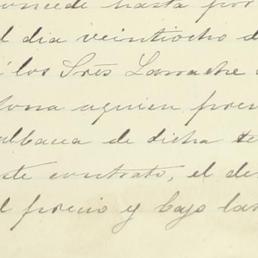 concede hasta por
l dia veintiocho d
los Sres Larrache
ona a quien pre
albacea de dicha te
ste contrato, el de
l precio y bajo las